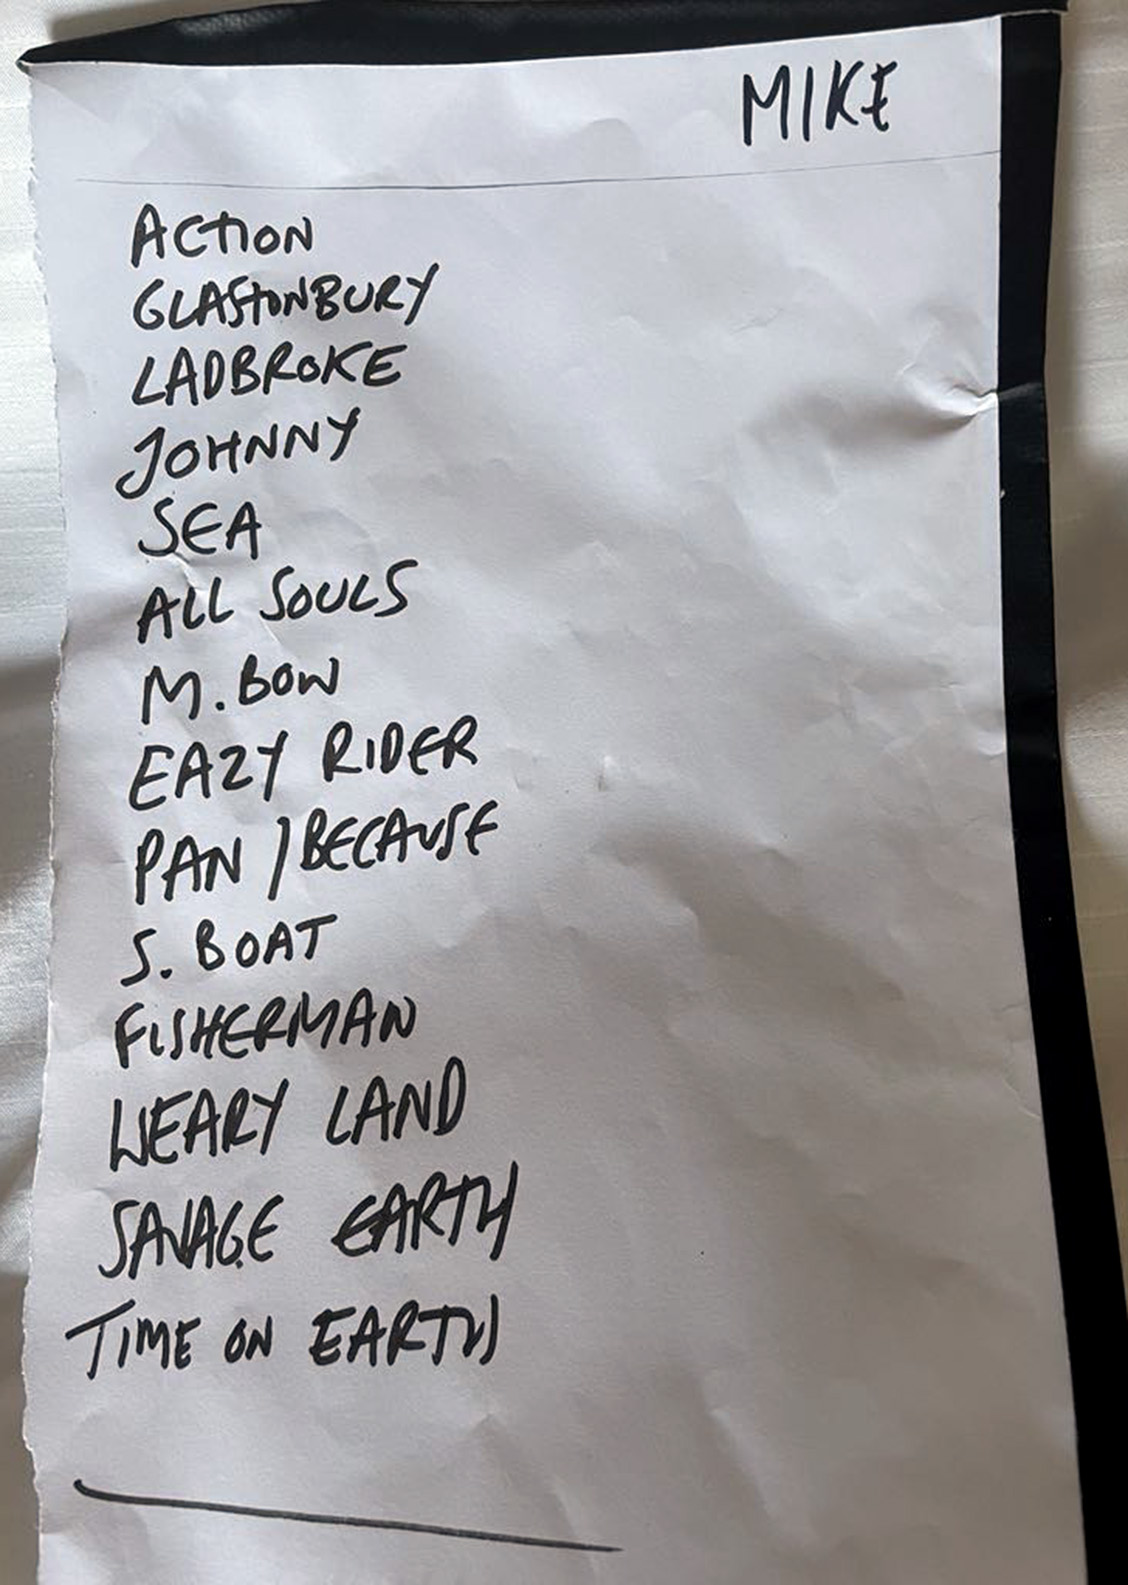 MIKE
ACTION
GLASTONBURY
LADBROKE
JOHNNY
SEA
ALL SOULS
M. BOW
EAZY RIDER
PAN / BECAUSE
S. BOAT
FISHERMAN
WEARY LAND
SAVAGE EARTH
TIME ON EARTH